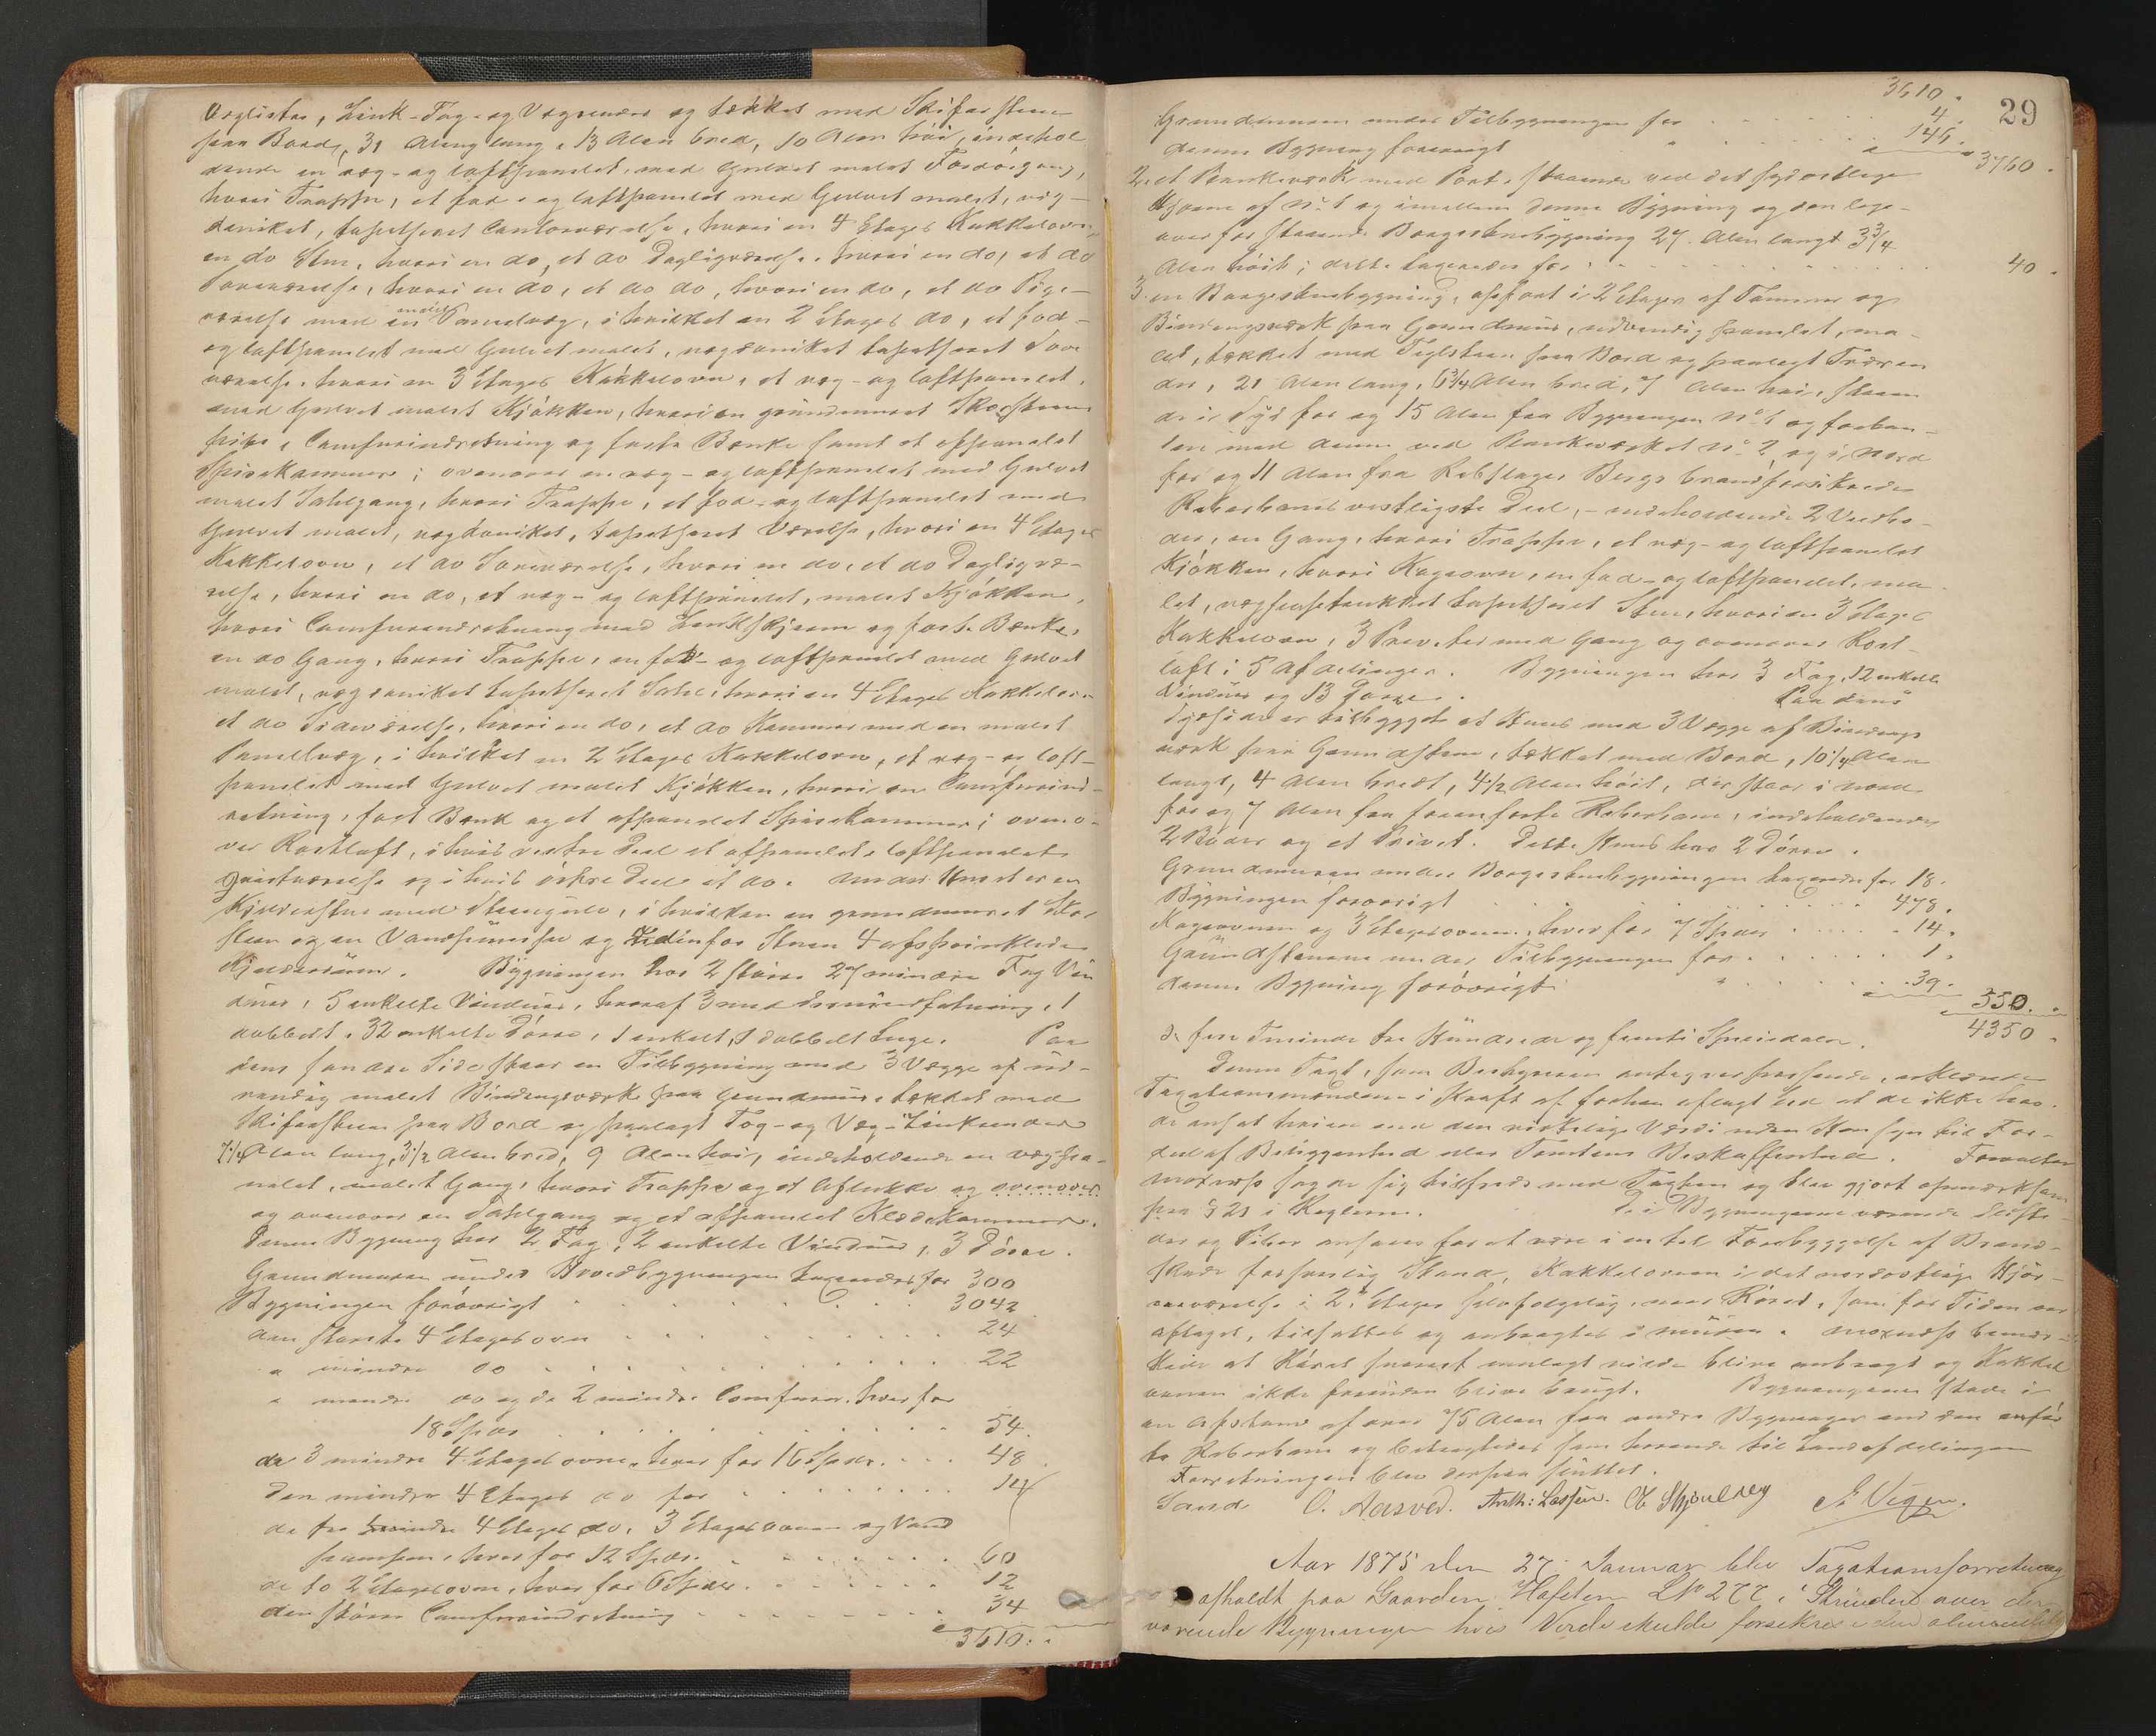 Tag- og Vægrender og tækket med Skifersteen
paa Bord, 31 Alen lang, 13 Alen bred, 10 Alen høi, indehol-
dende en væg- og loftpanelet, med Gulvet malet Fordørgang,
hvori Trappe, et fod- og loftpanelet med Gulvet malet, væg-
tapetseret Contorværelse, hvori en 4 Etages Kakkelovn,
en do Stue, hvori en do, et do Dagligværelse, hvori en do, et do
Soveværelse, hvori en do, et do do, hvori en do, et do Pige-
værelse med en malet Panelvæg, i hvilket en 2 Etages do, et fod-
og loftpanelet med Gulvet malet, tapetseret Sove
værelse, hvori en 3 Etages Kakkelovn, et væg- og loftpanelet,
med Gulvet malet Kjøkken, hvori en grundmuret Skorsteens
pibe, Comfurindretning og faste Bænke samt et afpanelet
Spisekammer; ovenover en væg- og loftpanelet med Gulvet
malet Salsgang, hvori Trappe, et fod- og loftpanelet med
Gulvet malet, tapetseret Værelse, hvori en 4 Etages
Kakkelovn, et do Soveværelse, hvori en do, et do Dagligvæ-
relse, hvori en do, et væg- og loftpanelet, malet Kjøkken,
hvori Comfurindretning med og faste Bænke,
en do Gang, hvori Trappe, en fod- og loftpanelet med Gulvet
malet, tapetseret Sal, hvori en 4 Etages Kakkelovn
et do Soveværelse, hvori en do, et do Kammer med en malet
Panelvæg, i hvilket en 2 Etages Kakkelovn, et væg- og loft-
panelet med Gulvet malet Kjøkken, hvori en Comfurind-
retning, fast Bænk og et afpanelet Spisekammer; oveno-
ver Røstloft, i hvis vestre Deel et afpanelet, loftpanelet
Qvistværelse og i hvis østre Deel et do. Under Huset er en
Kjælderstue med Steengulv, i hvilken en grundmuret Skor
steen og en Vandpumpe og udenfor Stuen 4
Kjælderrum. Bygningen har 2 større 27 mindre Fag Vin
duer, 5 enkelte Vinduer, hvoraf 3 med 1
dobbelt, 32 enkelte Dørre, 1 enkelt, 1 dobbelt Luge. Paa
dens søndre Side staar en Tilbygning med 3 Vægge af ud-
vendig malet Bindingsværk paa Grundmuur, tækket med
Skifersteen paa Bord og paalagt Tag- og Væg-Zinkrender
7¼ Alen lang, 3½ Alen bred, 9 Alen høi, indeholdende en vægpa-
nelet, malet Gang, hvori Trappe og et Aflukke og ovenover
og ovenover en Salsgang og et afpanelet Klædekammer.
Denne Bygning har 2 Fag, 2 enkelte Vinduer, 3 Dørre.
Grundmuren under Hovedbygningen taxeredes for 300
Bygningen forøvrigt 3042
den største 4 Etagesovn 24
" mindre do 22
" mindre do og de 2 mindre Comfurer, hver for
18 Spdr 54.
de 3 mindre 4 Etages ovne, hver for 16 Spdr. 48
den mindre 4 Etages do for 14
de tre mindre 4 Etages do, 3 Etagesovnen og Vand
pumpen, hver for 12 Spdr. 60
de to 2 Etagesovne, hver for 6 Spdr. 12
den større Comfurindretning 34
3610.
3610.
29
Grundmuren under Tilbygningen for 4.
denne Bygning forøvrigt " 146.
3760.
2, et Plankeværk med Port, staaende ved det sydostlige
Hjørne af No 1 og imellem denne Bygning og den lige-
overfor staaende Borgestuebygning 27 Alen langt 3¾
Alen høit; dette taxeredes for 40.
3. en Borgestuebygning, opført i 2 Etager af Tømmer og
Bindingsværk paa Grundmuur, udvendig panelet, ma-
let, tækket med Teglsteen paa Bord og paalagt Træren
der, 21 Alen lang, 13¾ Alen bred, 7 Alen høi, staaen
de i Syd for og 15 Alen fra Bygningen No 1 og forbun-
den med denne ved Plankeværket No 2 og i Nord
for og 11 Alen fra Rebslager Bergs brandforsikrede
Reberbane vestligste Deel, - indeholdende 2 Vedbo-
der, en Gang, hvori Trappe, et væg- og loftpanelet
Kjøkken, hvori Kogeovn, en fod- og loftpanelet, ma-
let, tapetseret Stue, hvori en 3 Etages
Kakkelovn, 3 Priveter med Gang og ovenover Røst-
loft i 5 Afdelinger. Bygningen har 3 Fag, 12 enkelte
Vinduer og 13 Dørre. Paa dens
Sydside er tilbygget et Huus med 3 Vægge af Bindings
værk paa Grundsteen, tækket med Bord, 10¼ Alen
langt, 4 Alen bredt, 4½ Alen høit, der staar i Nord
for og 7 Alen fra foranførte Reberbane, indeholdende
2 Boder og et Privet. Dette Huus har 2 Dørre.
Grundmuren under Borgestuebygningen taxeredes for 18.
Bygningen forøvrigt 478.
Kogeovnen og 3 Etagesovnen, hver for 7 Spdr 14.
Grundstenene under Tilbygningen for 1.
denne Bygning forøvrigt " 39.
550.
4350.
er fire Tusinde tre Hundrede og femti Speciedaler.
Denne Taxt, som Bestyreren antog var passende, erklærede
Taxationsmændene i Kraft af forhen aflagt Eed at de ikke hav-
de ansat høiere end den virkelige Værdi uden Hensyn til For-
deel af Beliggenhed eller Tomtens Beskaffenhed. Forvalter
Moxness sagde sig tilfreds med Taxten og blev gjort opmærksom
paa § 21 i Reglerne. De i Bygningerne værende Ildste-
der og Piber ansaaes for at være i en til Forebyggelse af Brand-
skade forsvarlig Stand, Kakkelovnen i det nordostlige Hjør-
neværelse i 2. Etage selvfølgelig, naar Røret, som for Tiden var
aftaget, tilsættes og anbragtes i Muren. Moxness bemær-
kede at Røret snarest muligt vilde blive anbragt og Kakkel
ovnen ikke forinden blive brugt. Bygningerne stode i
en Afstand af over 75 Alen fra andre Bygninger end den anfør
te Reberbane og betragtedes som hørende til Landafdelingen
Forretningen blev derpaa sluttet.
Lund O. Aasved. Anth: Lassen. Skjoulsey Vigen.
Aar 1875 den 27 Januar blev Taxationsforretning
afholdt paa Gaarden Hafsten LNo 277 i Strinden over de
værende Bygninger hvis Værdi skulde forsikres i den almindelige